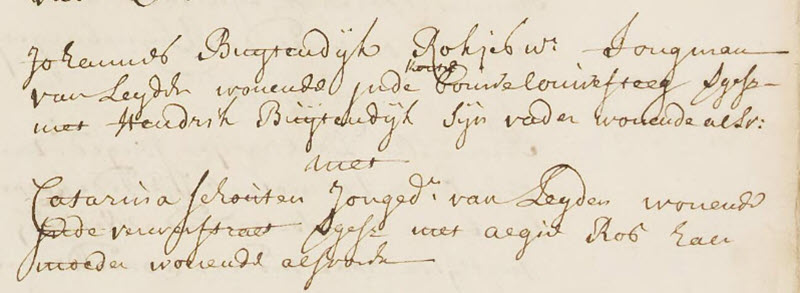 Johannes Buytendijk Rokjesw:r Jongman
van Leyden wonende jnde korte Bouwelouwesteeg Vges:
met Hendrik Buijtendijk sijn vader wonende alsv:
met
Catarina Schouten Jonged:r van Leyden wonende
jnde verwerstraet Vges: met aegie Ros haer
moeder wonende alsvoren